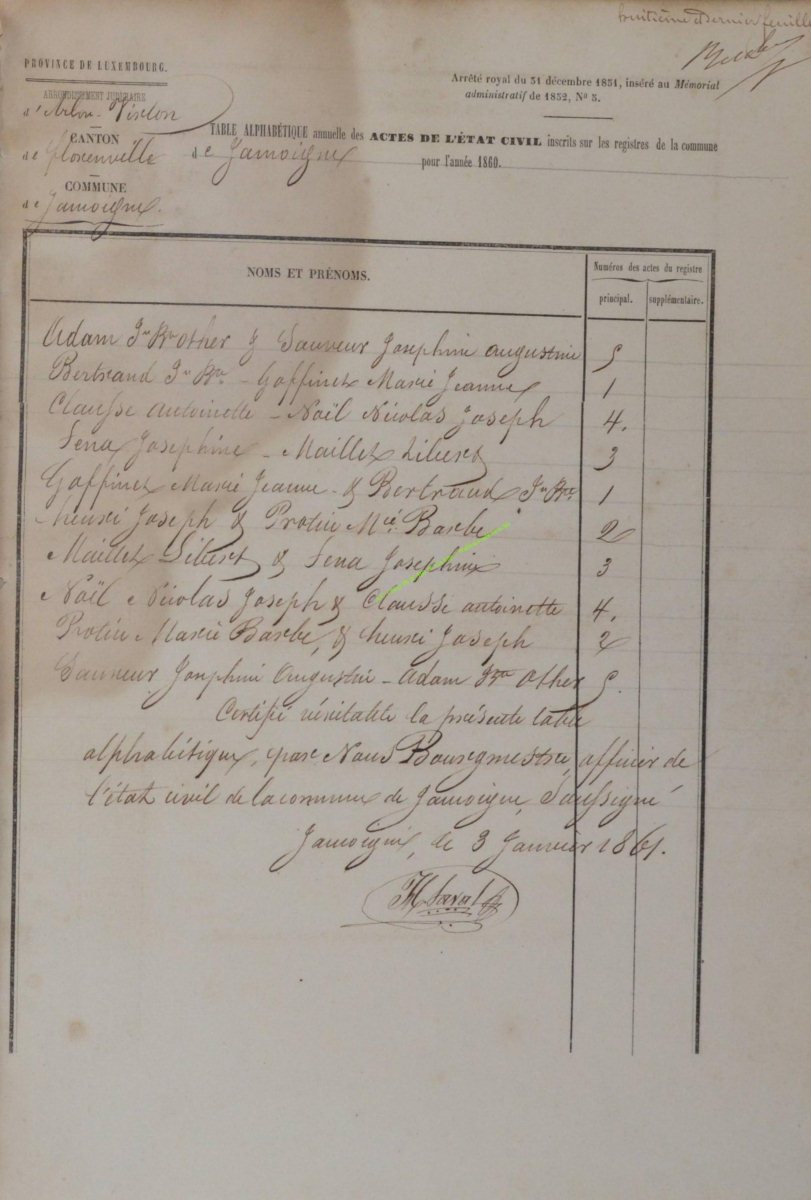 huitième et dernier feuillet
PROVINCE DE LUXEMBOURG.
Arrêté royal du 31 décembre 1851, inséré au Mémorial
administratif de 1852, No 3.
ARRONDISSEMENT JUDICIAIRE
d'Arlon
CANTON
de Florenville
COMMUNE
de Jamoigne.
TABLE ALPHABÉTIQUE annuelle des ACTES DE L'ÉTAT CIVIL inscrits sur les registres de la commune
de Jamoigne
pour l'année 1860.
NOMS ET PRÉNOMS.
Numéros des actes du registre
principal. supplémentaire.
Adam Jn Bte other & Sauveur Josephine augustine 5
Bertrand Jn Bte - Goffinet Marie Jeanne 1
Clausse antoinette - Noël Nicolas Joseph 4.
Fena Josephine - Maillet Libert 3
Goffinet Marie Jeanne - & Bertrand Jn Bte 1
henri Joseph & Protin Mie Barbe 2
Maillet Libert & Fena Josephine 3
Noël Nicolas Joseph & Clausse antoinette 4.
Protin Marie Barbe, & henri Joseph 2
Sauveur Josephine Augustine - Adam Jn Bte Other 5.
Certifié véritable la présente table
alphabétique, par Nous Bourgmestre, officier de
l'état civil de la commune de Jamoigne, Soussigné
Jamoigne, le 3 Janvier 1861.